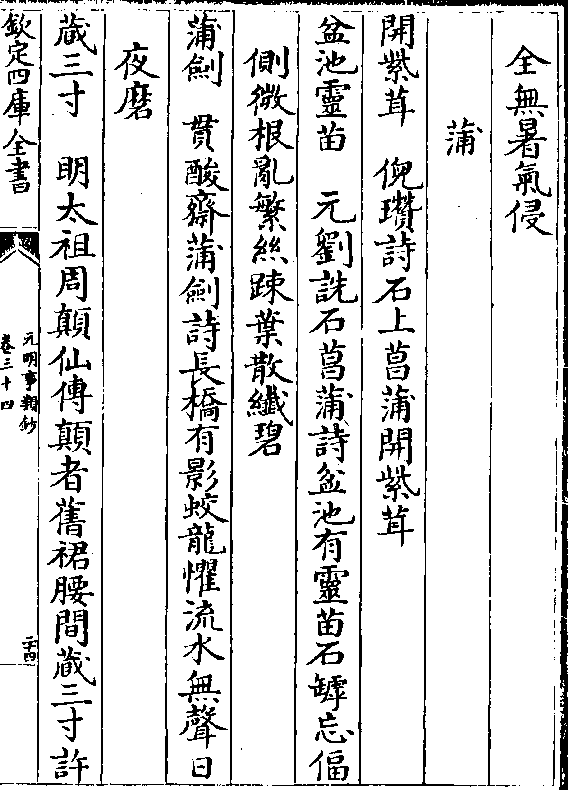 全無暑氣侵
蒲
開紫茸　倪瓚詩石上菖蒲開紫茸
盆池靈苗　元劉詵石菖蒲詩盆池有靈苗石罅忘偪
側微根亂繁絲踈葉散纖碧
蒲劍　貫酸齋蒲劍詩長橋有影蛟龍懼流水無聲日
夜磨
蔵三寸　明太祖周顛仙傳顛者舊裙腰間蔵三寸許
欽定四庫全書
元明事類鈔
卷三十四
二十四